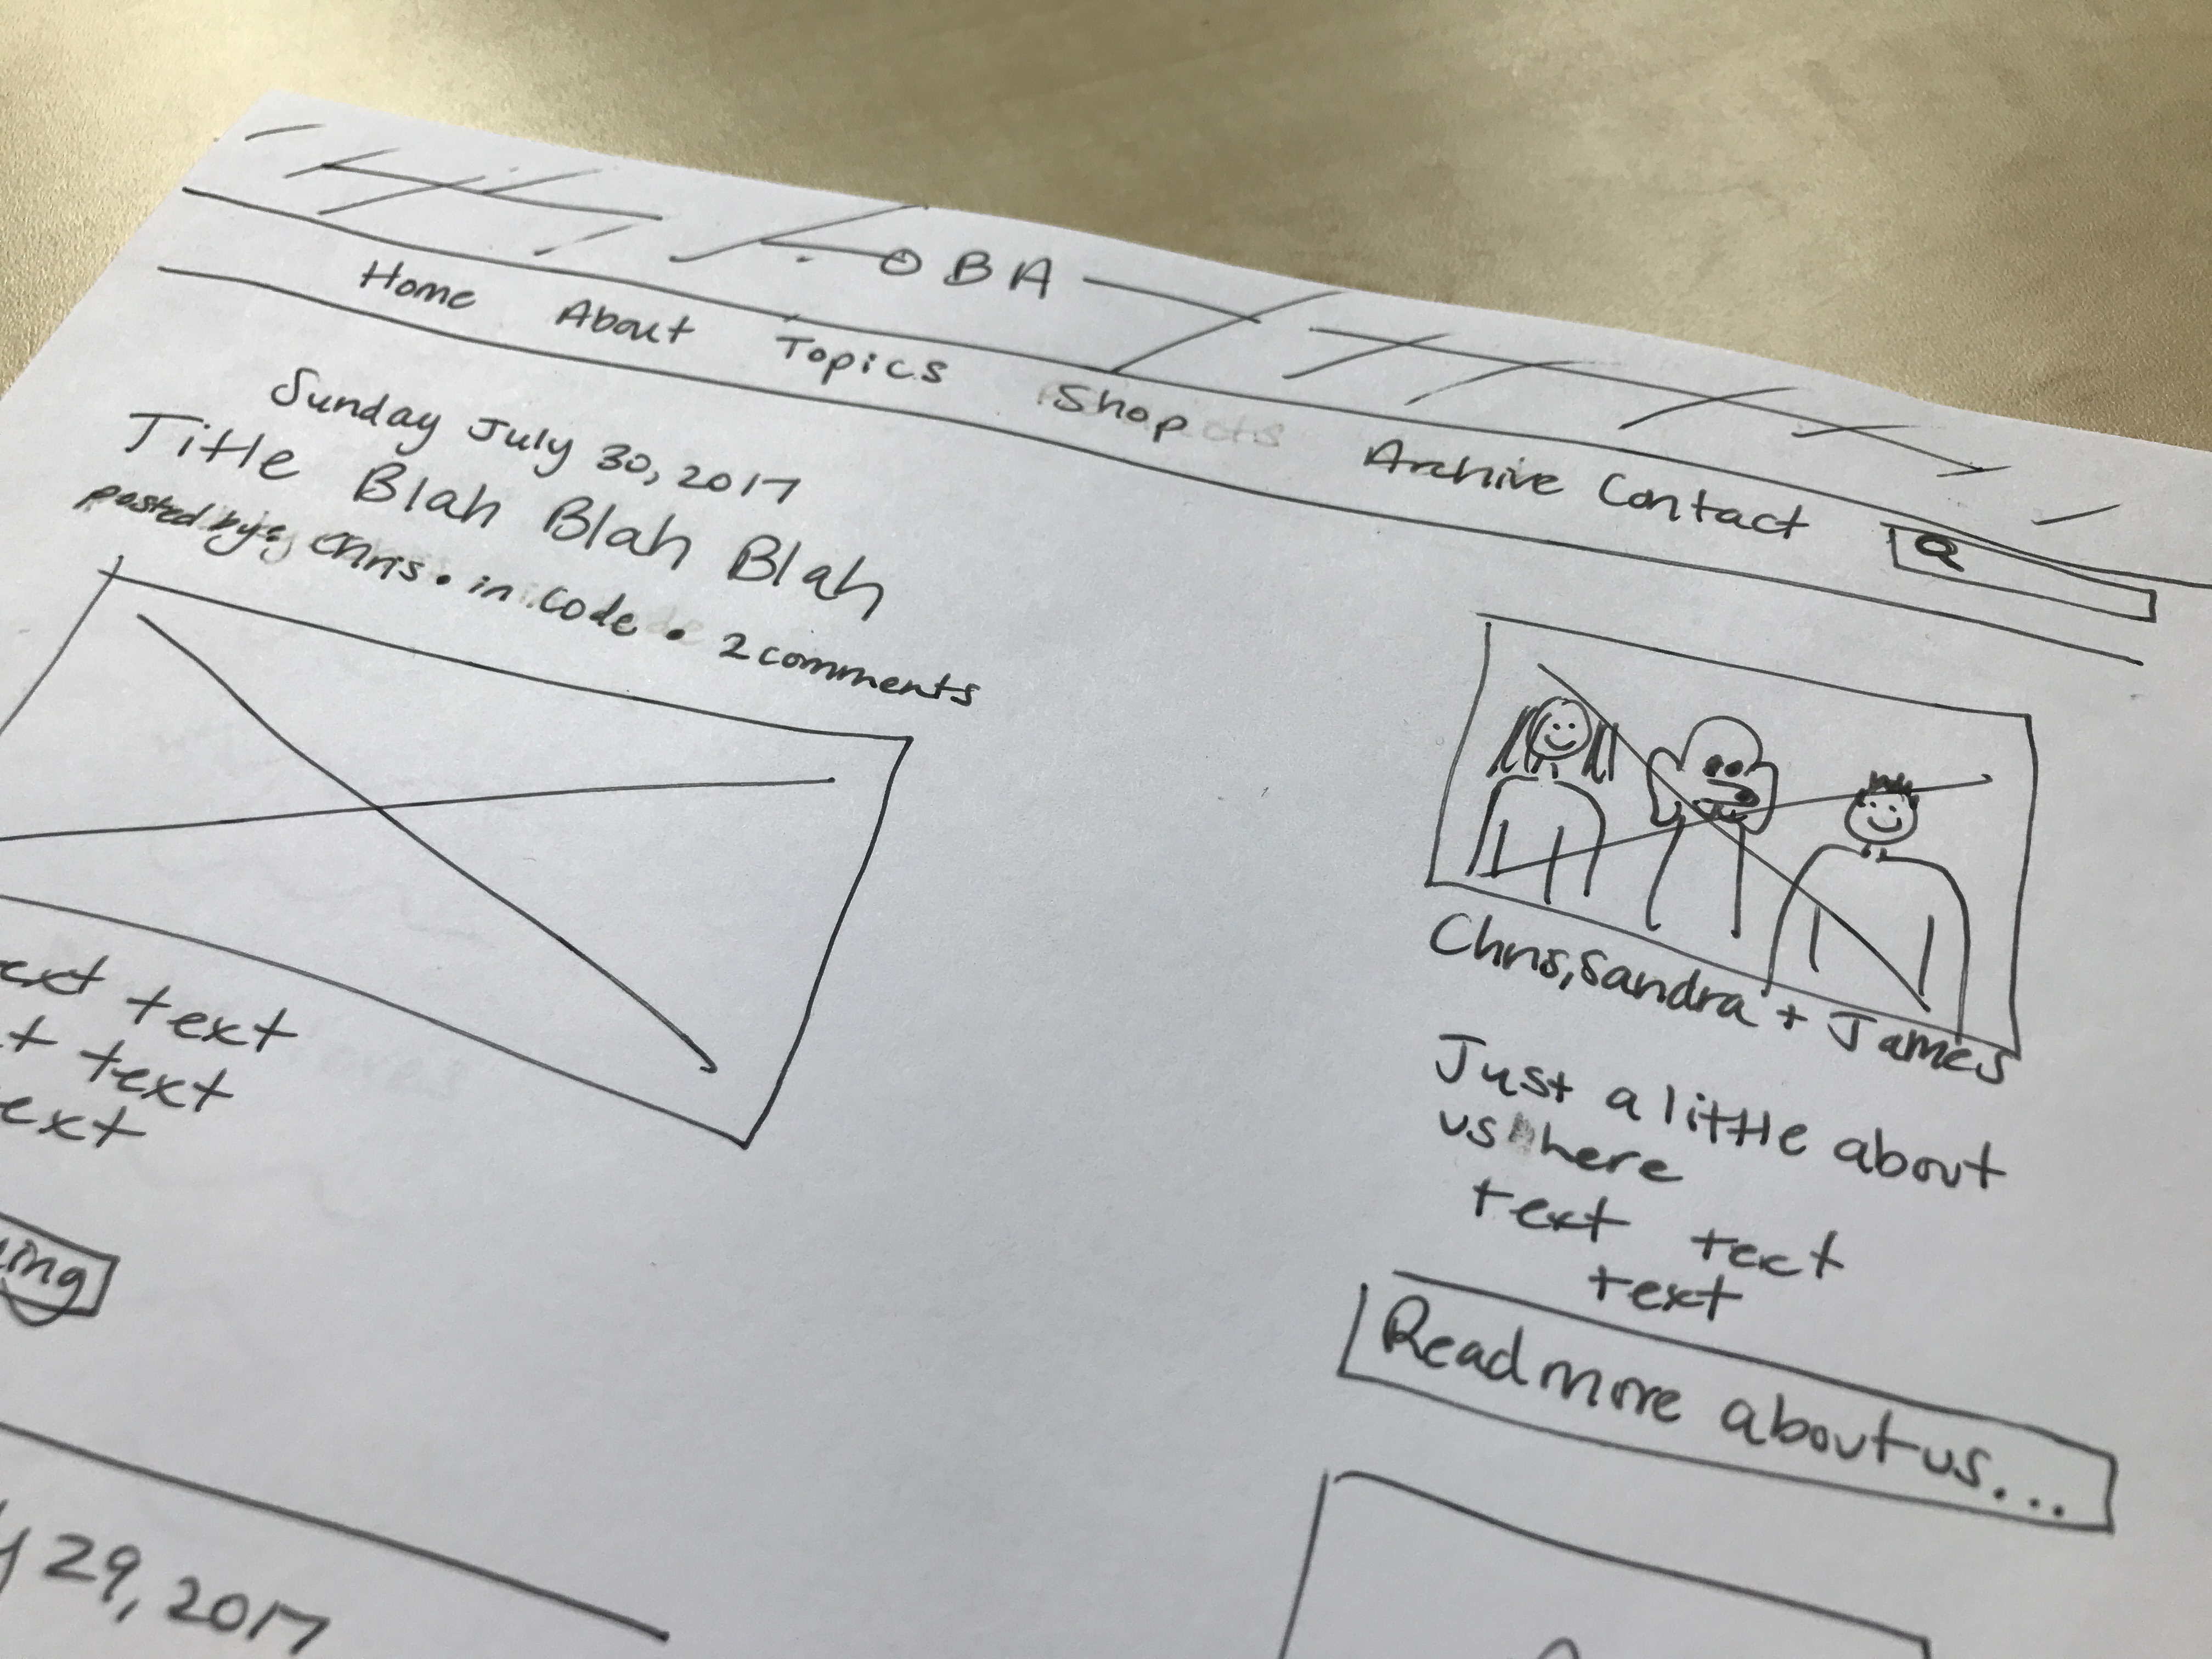 OBA
Home About Topics Shop Archive Contact
Sunday July 30, 2017
Title Blah Blah Blah
posted by: Chris • in Code • 2 comments
text
text
text
29, 2017
Chris, Sandra + James
Just a little about
us here
text text
text
Read more about us...